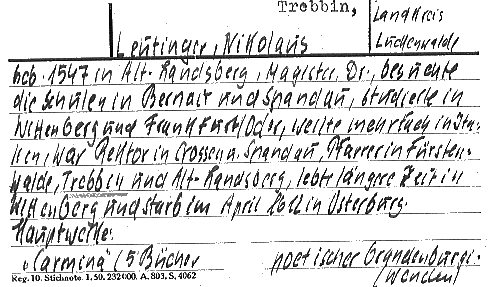 Trebbin,
Landkreis
Luckenwalde
Leutinger, Nikolaus
geb. 1547 in Alt-Landsberg, Magister, Dr., besuchte
die Schulen in Bernau und Spandau, studierte in
Wittenberg und Frankfurt/Oder, weilte mehrfach in Ita-
lien, war Rektor in Crossen u. Spandau, Pfarrer in Fürsten-
walde, Trebbin und Alt-Landsberg, lebte längere Zeit in
Wittenberg und starb im April in Osterburg.
Hauptwerke:
"Carmina" (5 Bücher poetischer
(Wenden)
Reg. 10. Stichnote. 1. 50. 232000. A. 803. S. 4062